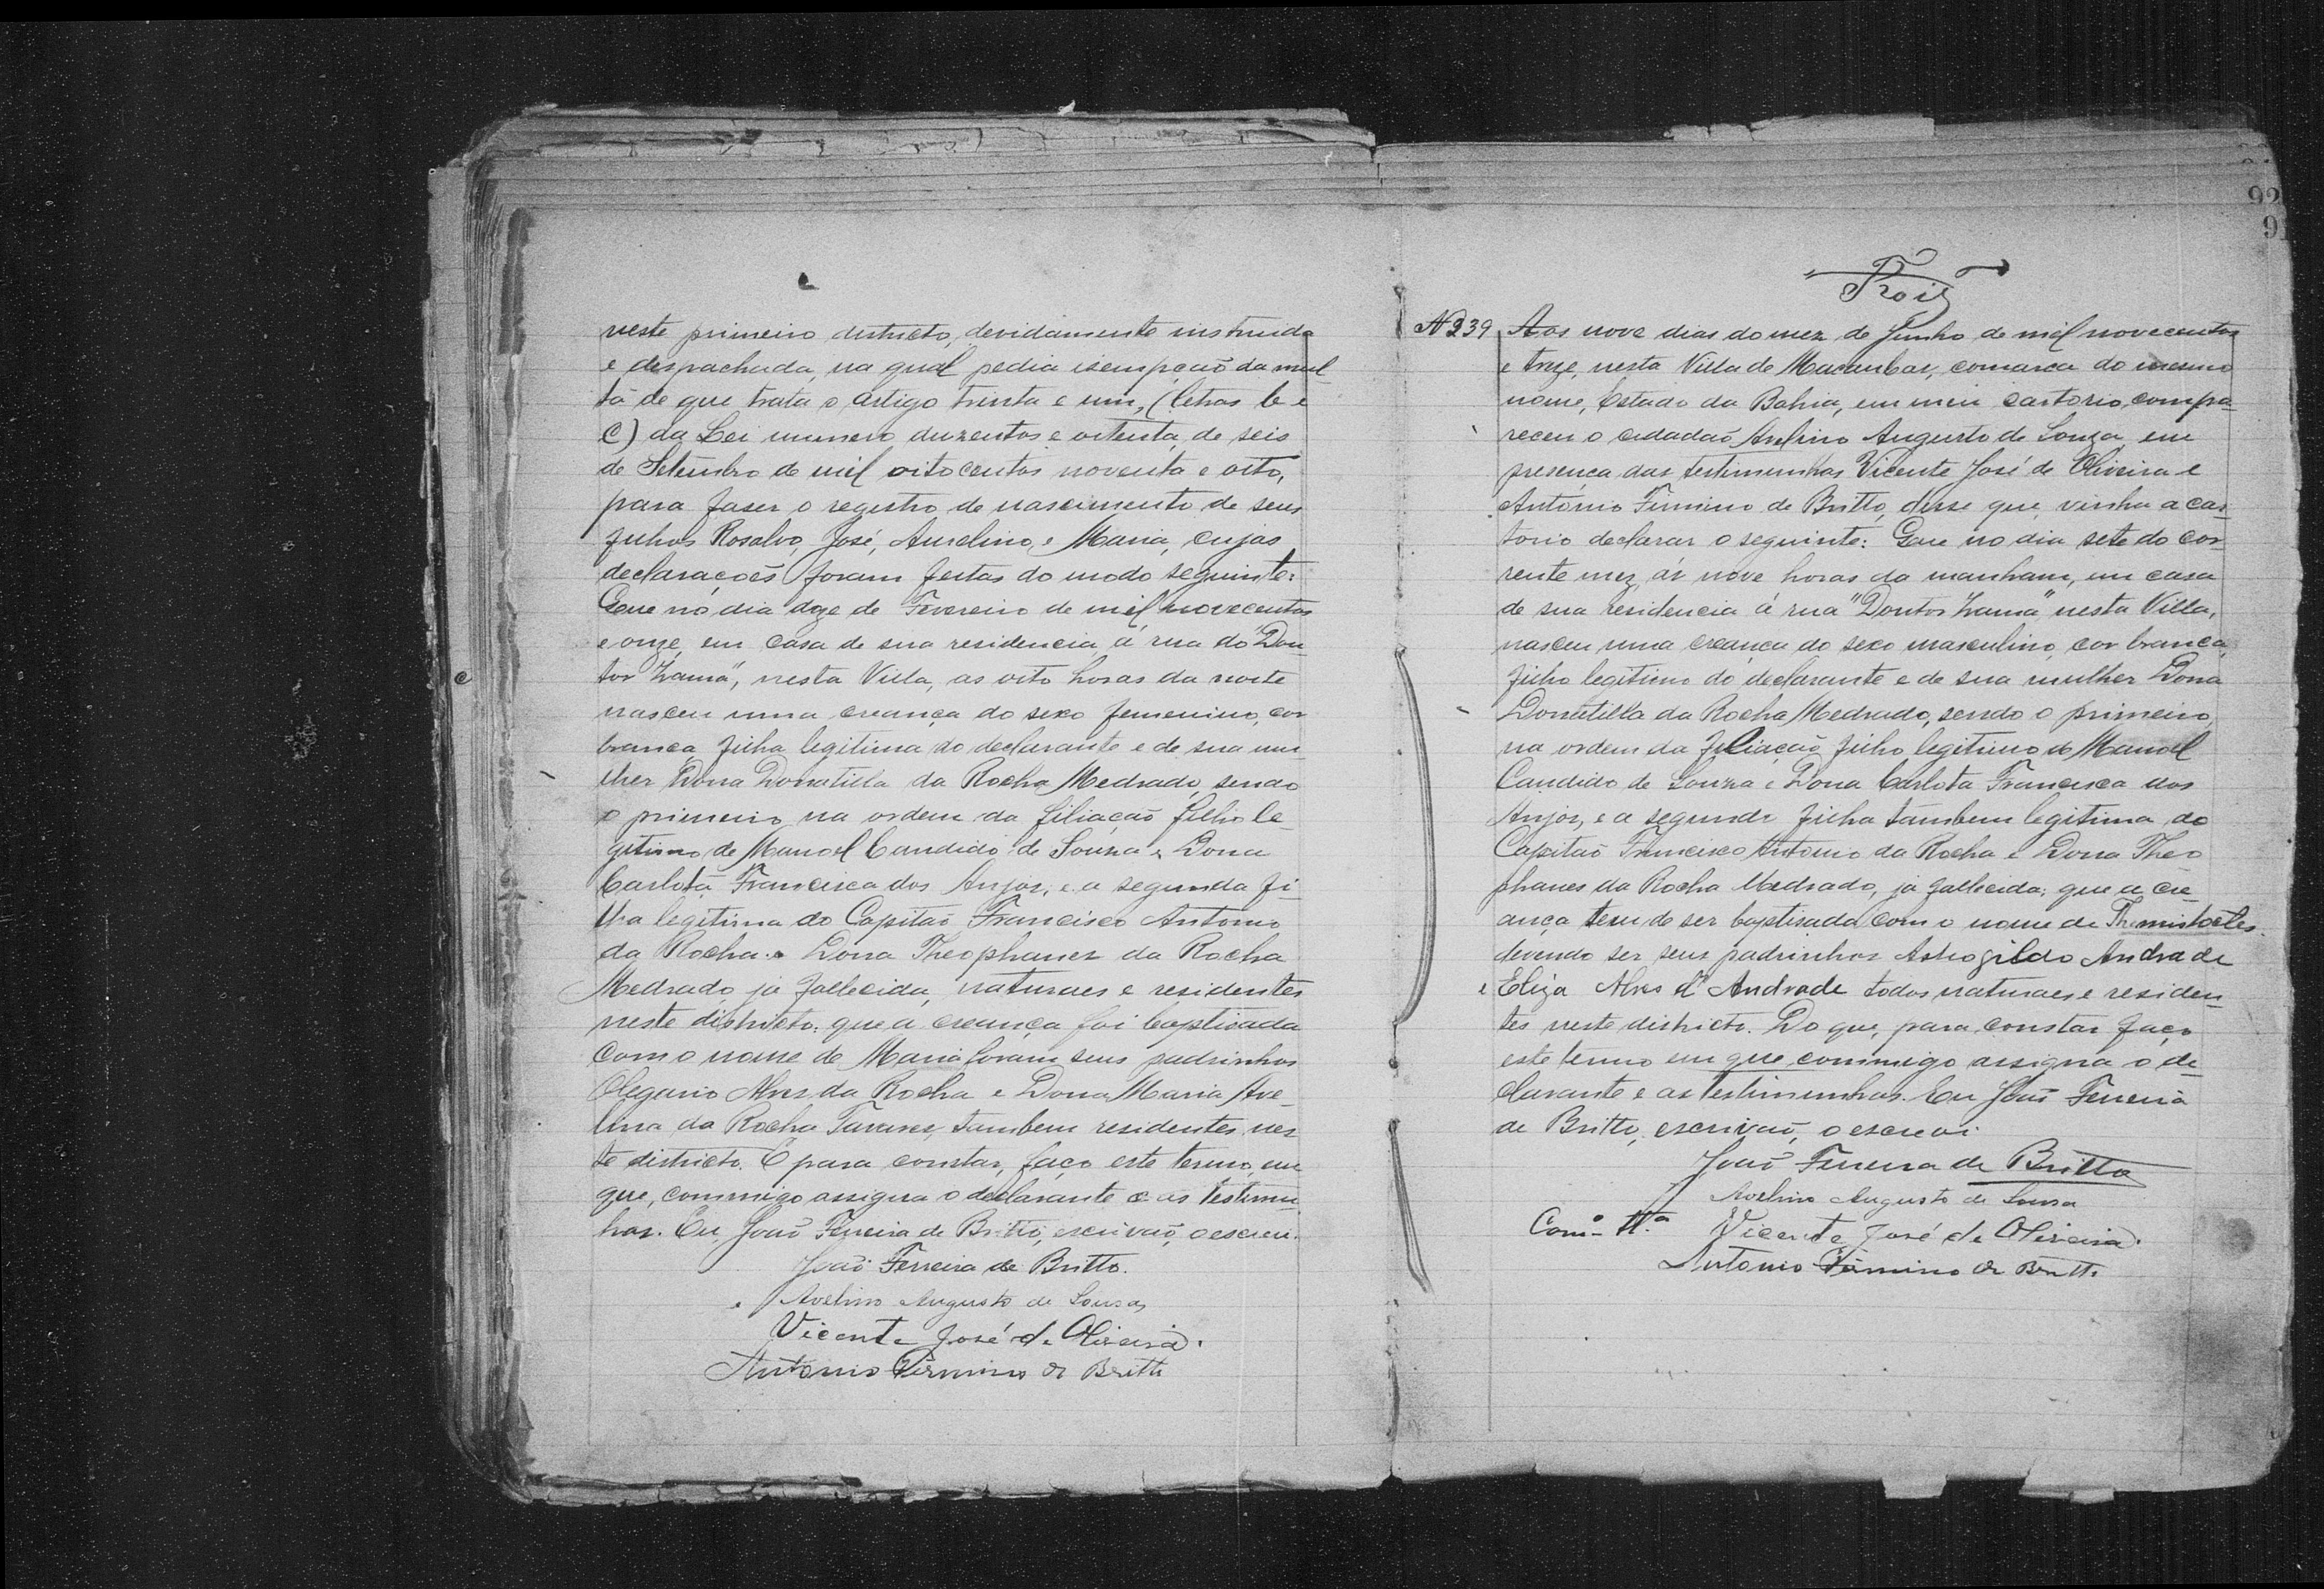 neste primeiro districto, devidamente instruida
e despachada, na qual pedia isempção da mul
ta de que trata o artigo trinta e um, (letras b e
C) da Lei numero duzentos e oitenta, de seis
de Setembro de mil oitocentos noventa e oito,
para faser o registro de nascimento de seus
filhos Rosalvo, José, Aurelino, e Maria, cujas
declarações foram feitas do modo seguinte:
Que no dia doze de Fevereiro de mil novecentos
e onze, em casa de sua residencia á rua do "Dou
tor Zama", nesta Villa, as oito horas da noite
nasceu uma creança do sexo femenino, cor
branca filha legitima do declarante e de sua mu
lher Dona Donatilla da Rocha Medrado, sendo
o primeiro na ordem da filiação filho le-
gitimo de Manoel Candido de Souza e Dona
Carlota Francisca dos Anjos, e a segunda fi-
lha legitima do Capitaõ Francisco Antonio
da Rocha e Dona Theophanes da Rocha
Medrado, já fallecida, naturaes e residentes
neste districto: que a creança foi baptisada
com o nome de Maria foram seus padrinhos
Olegario Alves da Rocha e Dona Maria Ave-
lina da Rocha Tavares, tambem residentes nes
te districto. E para constar, faço este termo, em
que, commigo assigna o declarante e as testemu-
nhas. Eu, João Ferreira de Britto, escrivaõ, o escrevi.
João Ferreira de Britto.
Avelino Augusto de Sousa
Vicente José de Oliveira.
Antonio Firmino de Britto
92
9
N 239
Aos nove dias do mez de Junho de mil novecentos
e treze, nesta Villa de Macaubas, comarca do mesmo
nome, Estado da Bahia, em meu cartorio, compa-
receu o cidadaõ Avelino Augusto de Souza, em
presença das testimunhas Vicente José de Oliveira e
Antonio Firmino de Britto, disse que vinha a car-
torio declarar o seguinte: Que no dia sete do cor-
rente mez, ás nove horas da manham, em casa
de sua residencia á rua "Doutor Zama" nesta Villa,
nasceu uma creança do sexo masculino, cor branca,
filho legitimo do declarante e de sua mulher Dona
Donatilla da Rocha Medrado, sendo o primeiro,
na ordem da filiação filho legitimo de Manoel
Candido de Souza e Dona Carlota Francisca dos
Anjos, e a segunda filha tambem legitima do
Capitaõ Francisco Antonio da Rocha e Dona Theo
phanes da Rocha Medrado, já fallecida; que a cre-
ança tem de ser baptisada com o nome de Themistocles
devendo ser seus padrinhos Astrogildo Andrade
e Eliza Alves d'Andrade todos naturaes e residen-
tes neste districto. Do que, para constar faço
este termo em que commigo assigna o de-
clarante e as testimunhas. Eu João Ferreira
de Britto, escrivaõ, o escrevi
João Ferreira de Britto
Avelino Augusto de Sousa
Como tta. Vicente José de Oliveira.
Antonio Firmino de Britto